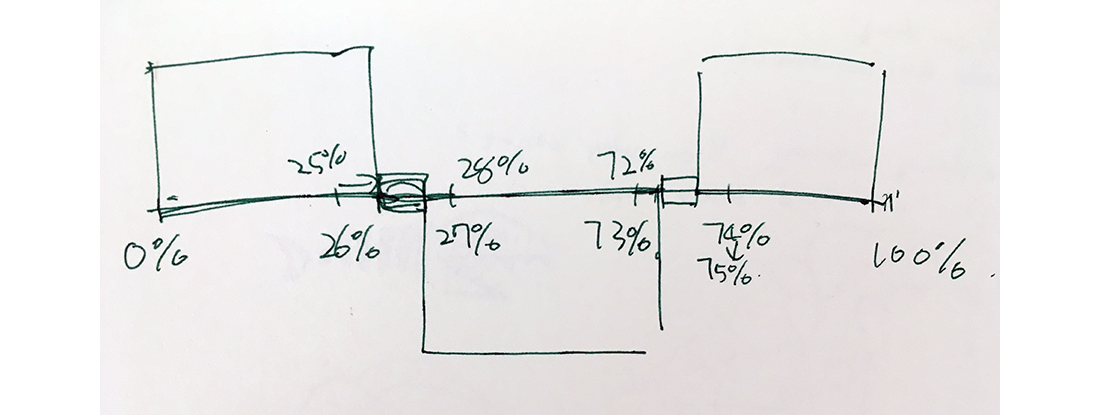 25% 28% 72%
0% 26% 27% 73% 74% 100%
75%